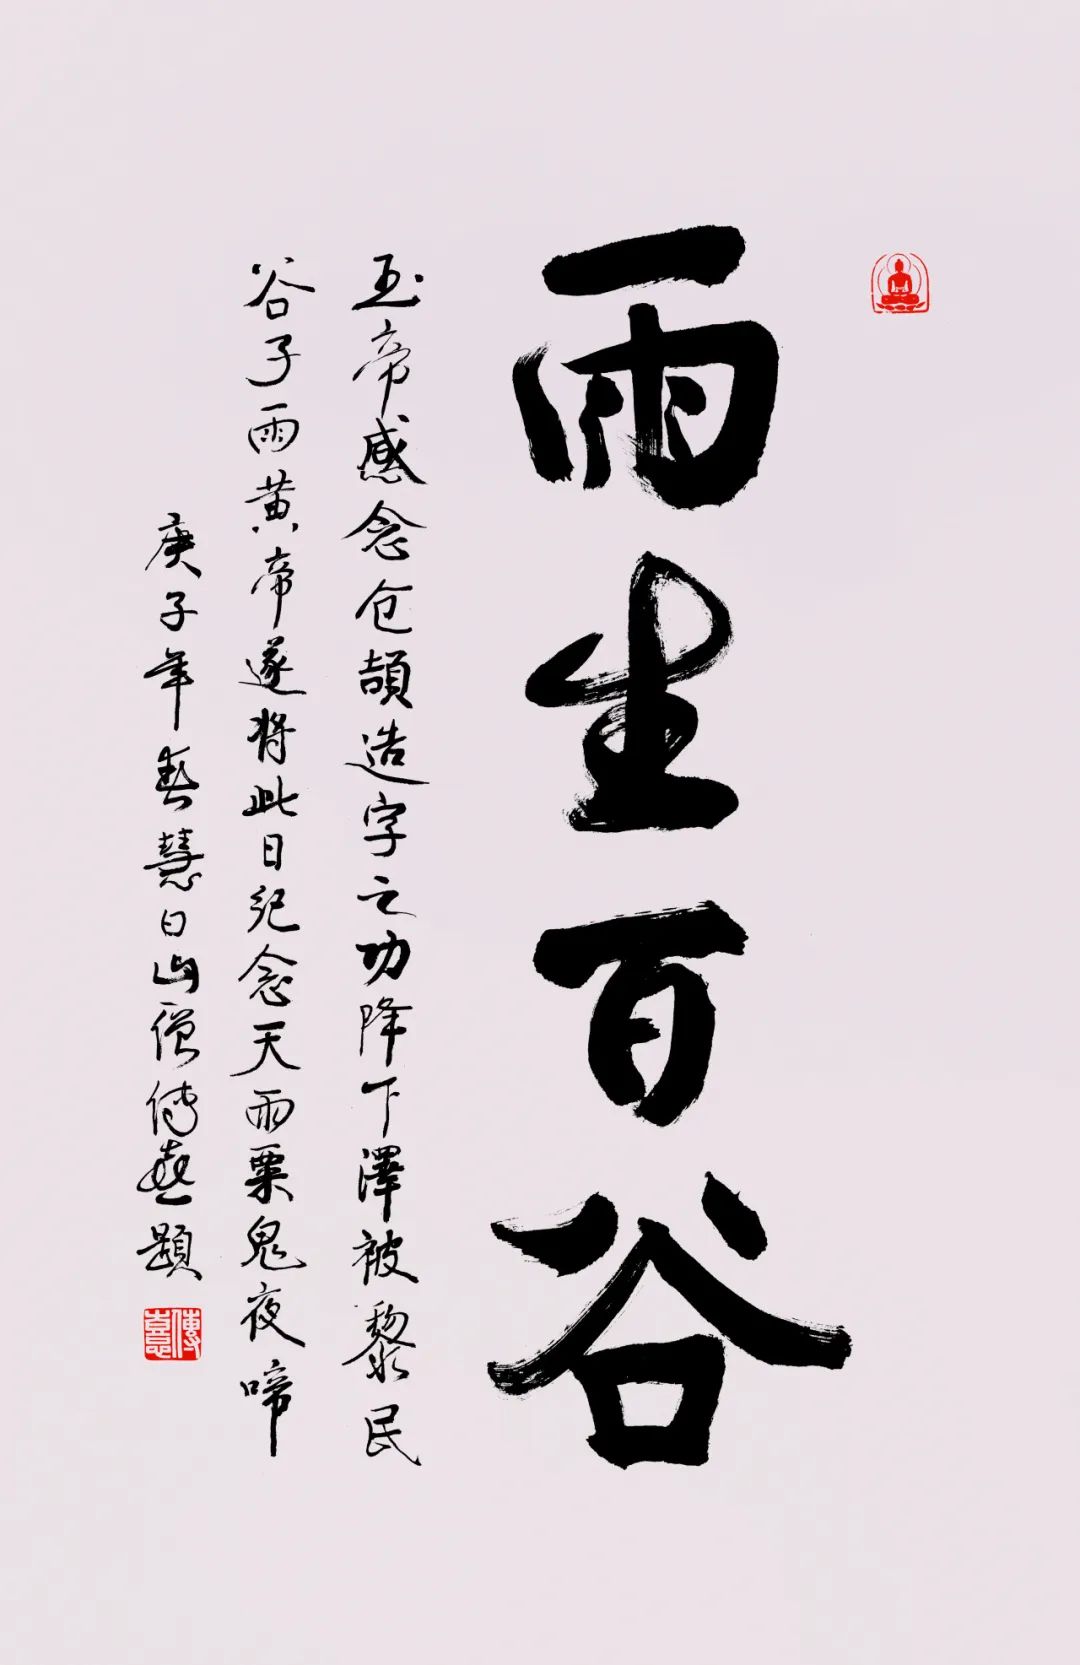 雨生百谷
玉帝感念仓颉造字之功降下澤被黎民
谷子雨黄帝遂将此日纪念天雨粟鬼夜啼
庚子年春慧日山僧传喜题
傳喜